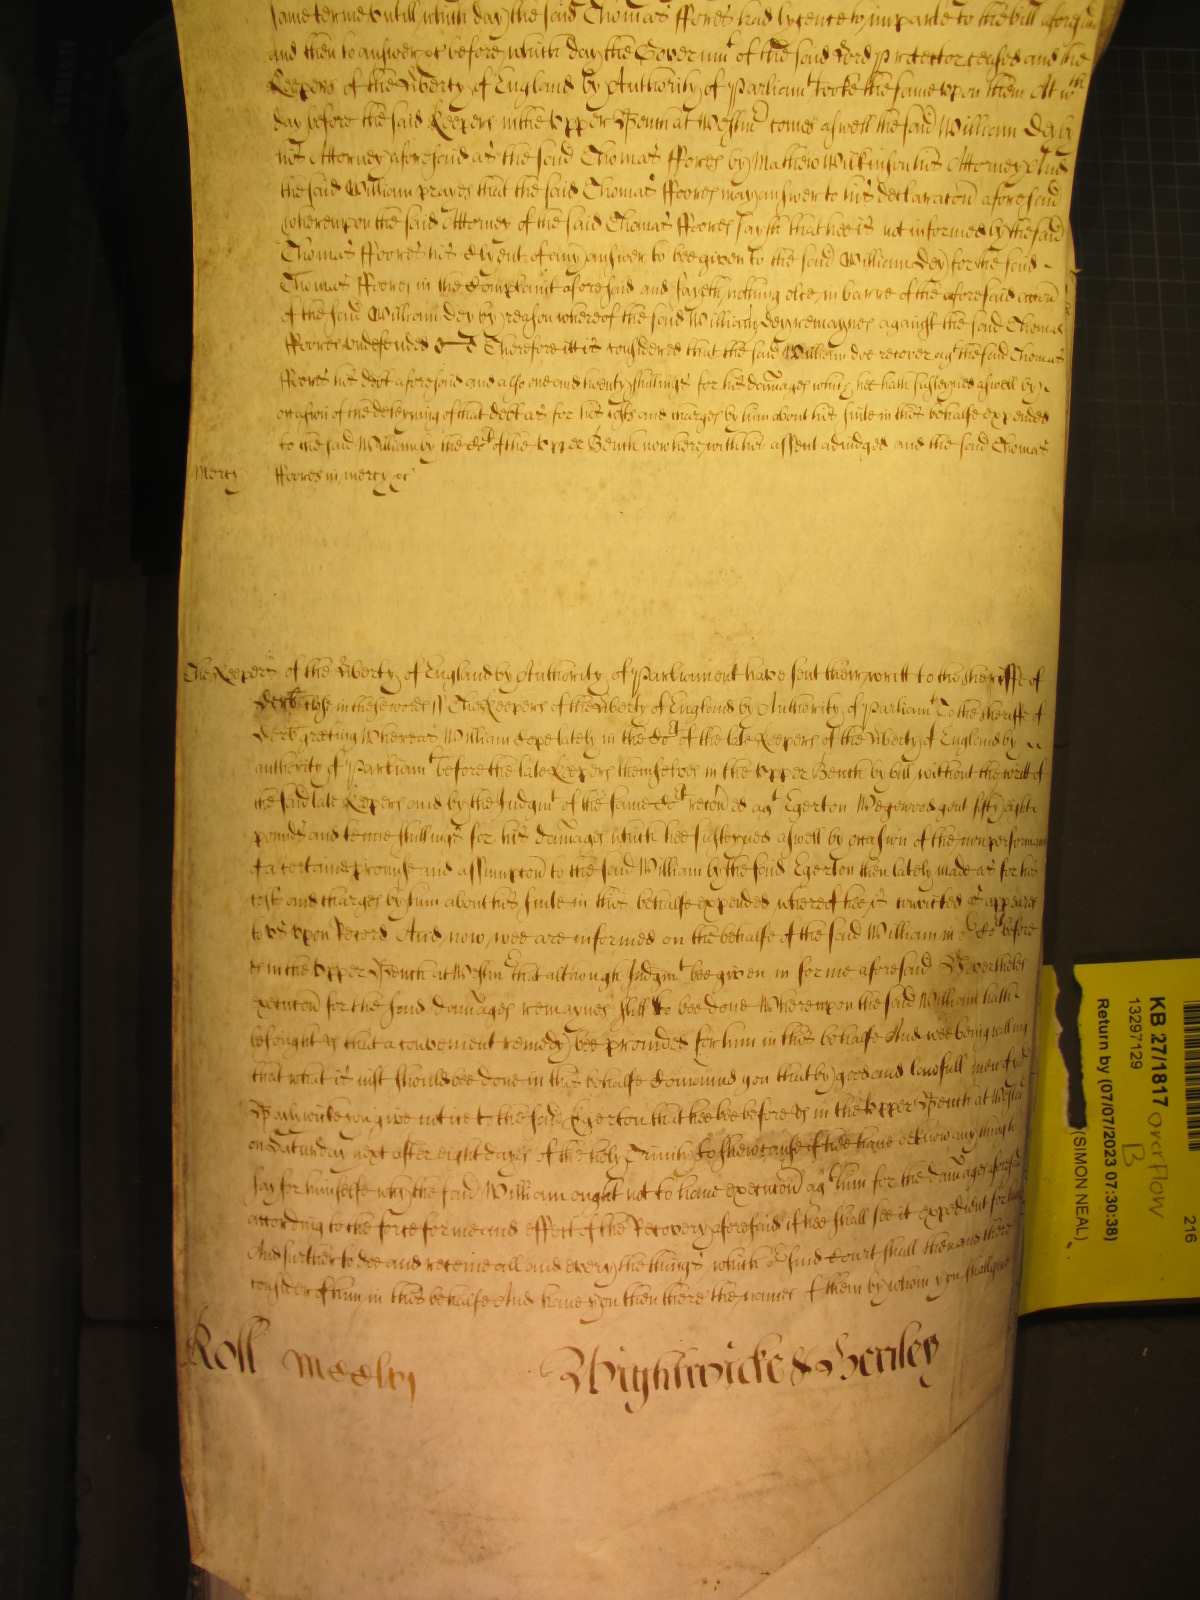 same terme untill which day the said Thomas ffores had lycence to imparle to the bill aforesaid
and then to answer &c before which day the Governmt of the said Lord protector ceased and the
Keepers of the Liberty of England by Authority of Parliamt tooke the same upon them At wch
day before the said Keepers in the Upper Bench at Westmr comes aswell the said William Dey by
his Attorney aforesaid as the said Thomas ffores by Mathew Wilkinson his Attorney And
the said William prayes that the said Thomas ffoores may answer to his declaracon aforesaid
whereupon the said Attorney of the said Thomas ffoores sayth that hee is not informed by the said
Thomas ffoores his Clyent of any answer to bee given to the said William Dey for the said
Thomas ffoores in the Complaint aforesaid and sayeth nothing else in barre of the aforesaid accon
of the said William Dey by reason whereof the said William Dey remaynes against the said Thomas
ffoores undefended Therefore itt is considered that the said William doe recover agt the said Thomas
ffoores his debt aforesaid and also one and twenty shillings for his damages which hee hath susteyned aswell by
occasion of the deteyning of that debt as for his costs and charges by him about his suite in this behalfe expended
to the said William by the Cort of the Upper Bench now here with his assent adiudged and the said Thomas
Mercy ffoores in mercy &c
The Keepers of the Liberty of England by Authority of Parliament have sent their writt to the Sheriffe of
Derb close in these words ss The Keepers of the Liberty of England by Authority of Parliamt To the Sheriffe of
Derb greeting Whereas William Cope lately in the Cort of the late Keepers of the Liberty of England by
authority of Parliamt before the late Keepers themselves in the Upper Bench by bill without the writt of
the said late Keepers and by the Judgmt of the same Cort recovred agt Egerton Wegewood gent fifty eight
pounds and tenne shillings for his damages which hee susteyned aswell by occasion of the nonperformance
of a certaine promise and assumpcon to the said William by the said Egerton then lately made as for his
costs and charges by him about his suite in this behalfe expended whereof hee is convicted as appeares
to us upon Record And now wee are informed on the behalfe of the said William in or Cort before
us in the Upper Bench at Westmr that although Judgmt bee given in forme aforesaid Neverthelesse
execucon for the said damages remaynes still to bee done Whereupon the said William hath
besought us that a convenient remedy bee provided for him in this behalfe And wee being willing
that what is iust should bee done in this behalfe Comaund you that by good and lawfull men of yor
Bayliwicke you give notice to the said Egerton that hee bee before us in the Upper Bench at Westmr
on Saturday next after eight dayes of the holy Trinity to shew cause if hee have or know any thing to
say for himselfe why the said William ought not to have execucon agt him for the damages aforesaid
according to the force forme and effect of the Recovery aforesaid if hee shall see it expedient for him
And further to doe and receive all and every the things which or said Court shall then and there
consider of him in this behalfe And have you then there the names of them by whom you shall give
Roll Wightwicke & Henley
KB 27/1817 overflow
13297129 B
Return by (07/07/2023 07:30:38)
(SIMON NEAL)
216